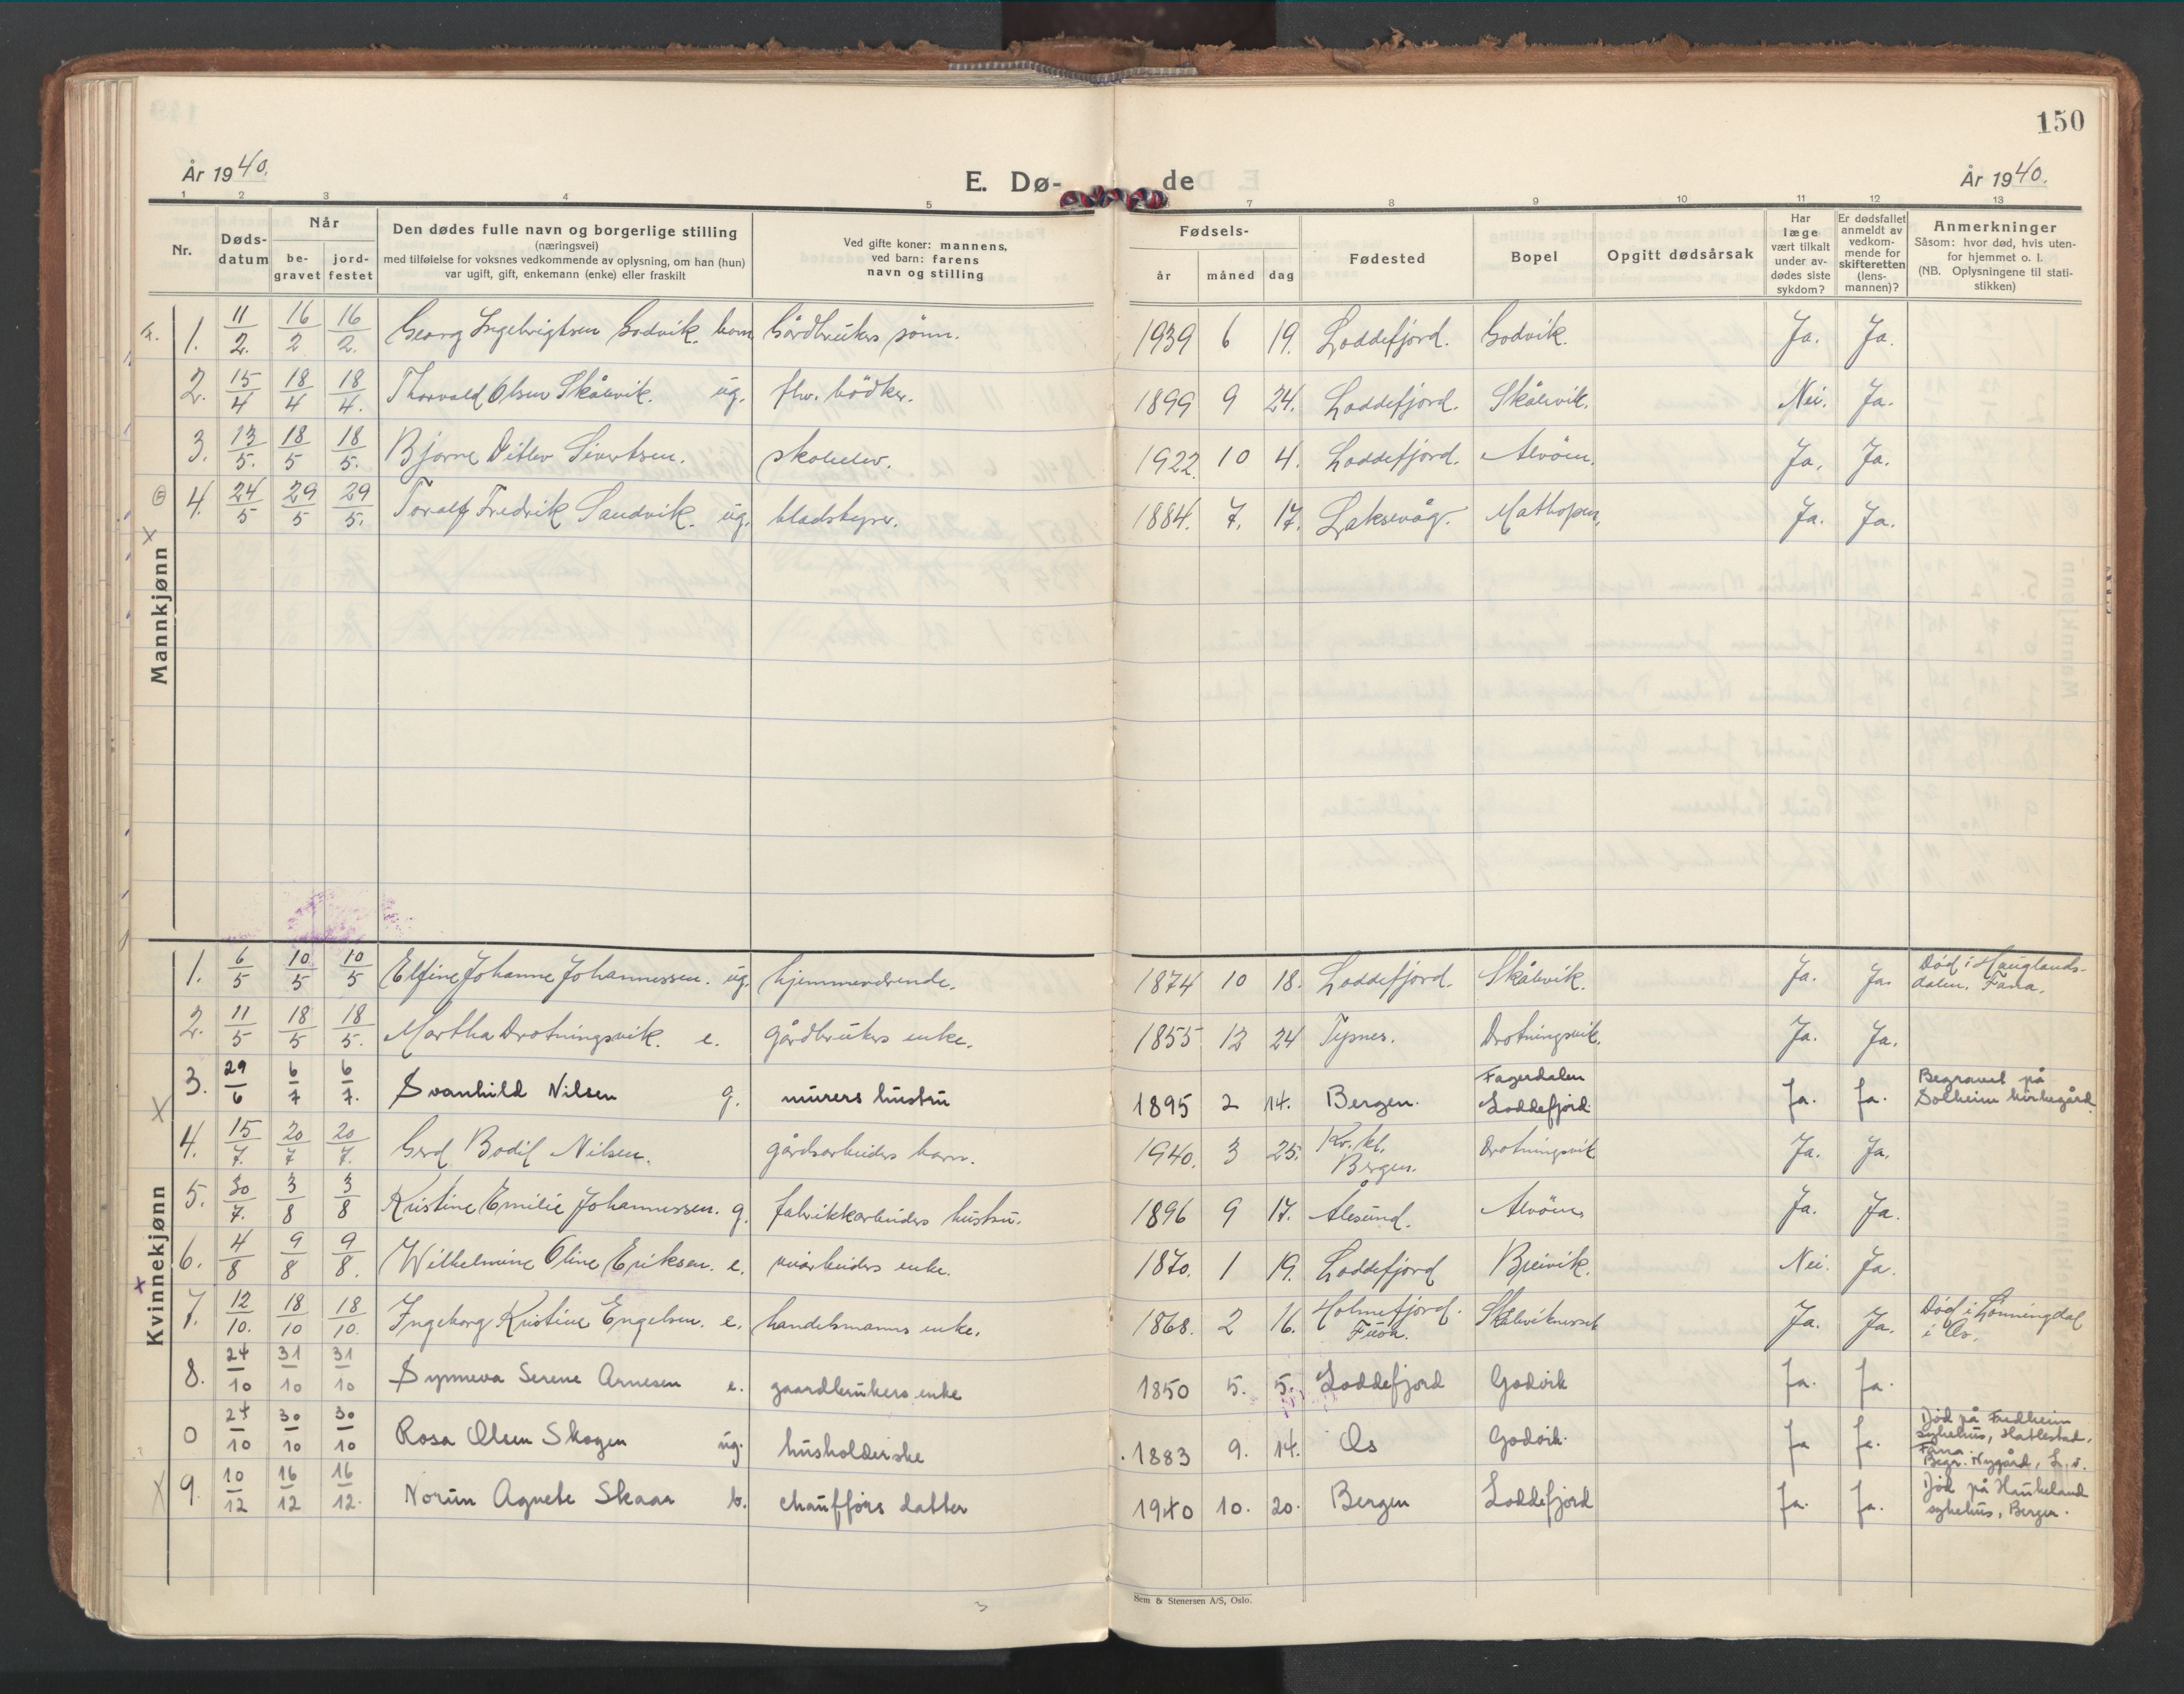 150
År 1940.
E. Dø-
de
År 1940.
1 2 3 4 5 7 8 9 10 11 12 13
Nr.
Døds-
datum
Når
be-
gravet
jord-
festet
Den dødes fulle navn og borgerlige stilling
(næringsvei)
med tilføielse for voksnes vedkommende av oplysning, om han (hun)
var ugift, gift, enkemann (enke) eller fraskilt
Ved gifte koner: mannens,
ved barn: farens
navn og stilling
Fødsels-
år måned dag
Fødested
Bopel
Opgitt dødsårsak
Har
læge
vært tilkalt
under av-
dødes siste
sykdom?
Er dødsfallet
anmeldt av
vedkom-
mende for
skifteretten
(lens-
mannen)?
Anmerkninger
Såsom: hvor død, hvis uten-
for hjemmet o. l.
(NB. Oplysningene til stati-
stikken)
Mannkjønn
1. 11/2. 16/2 16/2. Georg Ingebrigtsen Godvik. barn Gårdbrukers sönn. 1939 6 19. Loddefjord. Godvik. Ja. Ja.
2. 15/4 18/4 18/4. Thorvald Olsen Skålevik. ug. fhv. bödker. 1899 9 24. Loddefjord. Skålevik. Nei. Ja.
3. 13/5. 18/5 18/5. Bjarne Ditlev Sivertsen. skoleelev. 1922 10 4. Loddefjord. Alvöen. Ja. Ja.
4. 24/5 29/5 29/5. Toralf Fredrik Sandvik. ug. bladstyrer. 1884. 7. 17. Laksevåg. Mathopen. Ja. Ja.
Kvinnekjønn
1. 6/5 10/5 10/5 Elfine Johanne Johannessen. ug. hjemmeværende. 1874 10 18. Loddefjord. Skålevik. Ja. Ja. Död i Hauglands-
dalen, Fana.
2. 11/5 18/5 18/5. Martha Drotningsvik. e. gårdbrukers enke. 1855 12 24 Tysnes. Drotningsvik. Ja. Ja.
3. 29/6 6/7 6/7. Svanhild Nilsen g. murers hustru 1895 2 14. Bergen. Fagerdalen
Loddefjord Ja. Ja. Begravet på
Solheim kirkegård.
4. 15/7. 20/7 20/7. Gerd Bodil Nilsen. gårdsarbeiders barn. 1940. 3 25. Kv. kl.
Bergen. Drotningsvik Ja. Ja.
5. 30/7. 3/8 3/8 Kristine Emilie Johannessen. g. fabrikkarbeiders hustru. 1896 9 17. Ålesund. Alvöen. Ja. Ja.
6. 4/8 9/8 9/8. Wilhelmine Oline Eriksen. e. veiarbeiders enke. 1870. 1 19. Loddefjord Breivik. Nei. Ja.
7. 12/10. 18/10 18/10. Ingeborg Kristine Engelsen. e. handelsmanns enke. 1868. 2 16. Holmefjord.
Fusa. Ja. Ja. Död i Lönningdal
i Os.
8. 24/10 31/10 31/10 Synneva Serene Arnesen e. gaardbrukers enke 1850 5. 5. Loddefjord Godvik Ja. Ja.
0 24/10 30/10 30/10 Rosa Olsen Skogen ug. husholderske 1883 9. 14. Os Godvik. Ja Ja. Död på Fredheim
sykehus, Hatlestad,
Fana.
Begr. Nygård, L.v.
9. 10/12 16/12 16/12. Norun Agnete Skaar b. chaufförs datter 1940 10. 20. Bergen Loddefjord Ja. Ja. Död på Haukeland
sykehus, Bergen.
Sem & Stenersen A/S, Oslo.